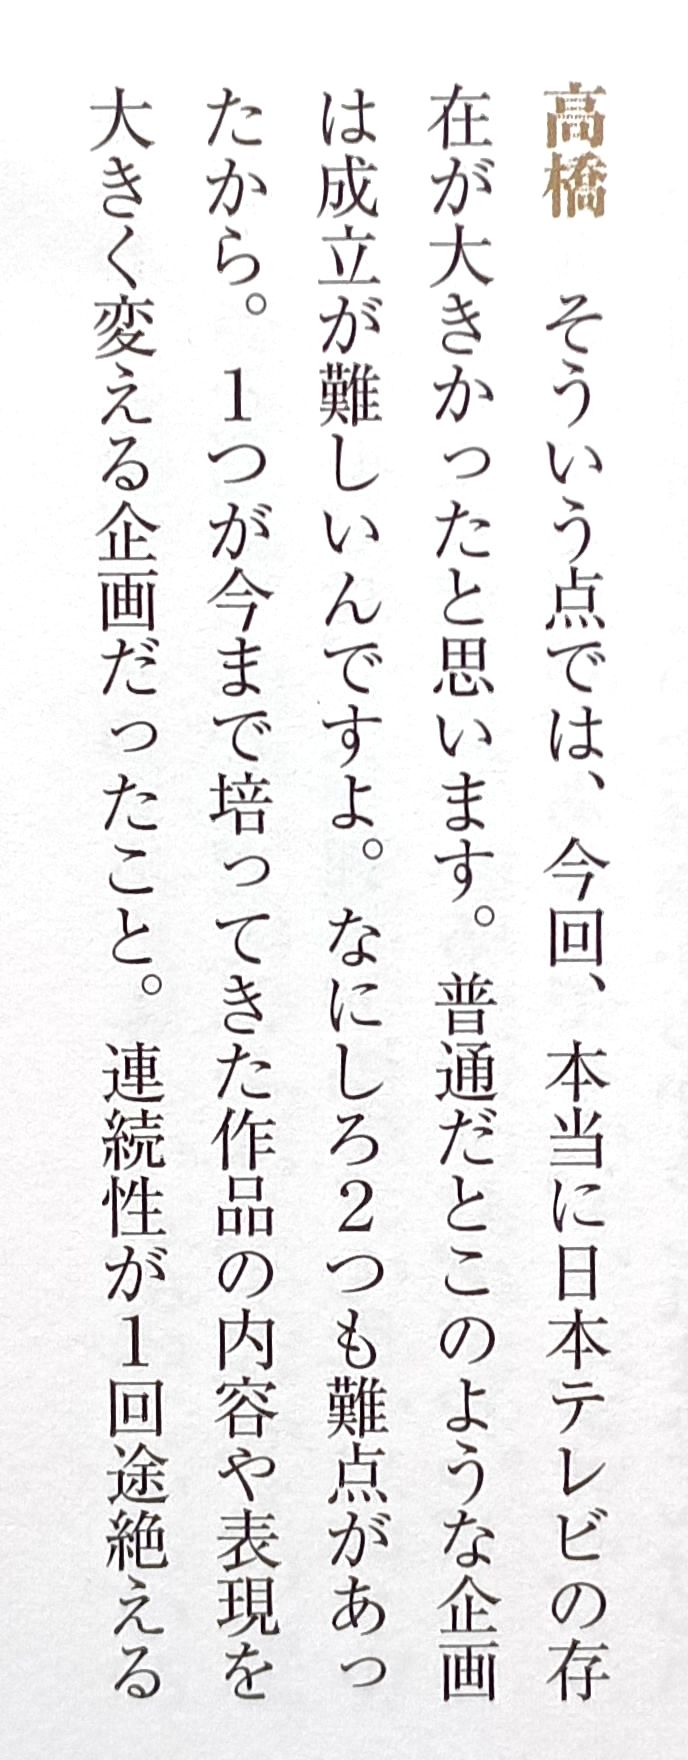 高橋　そういう点では、今回、本当に日本テレビの存
在が大きかったと思います。普通だとこのような企画
は成立が難しいんですよ。なにしろ2つも難点があっ
たから。1つが今まで培ってきた作品の内容や表現を
大きく変える企画だったこと。連続性が1回途絶える